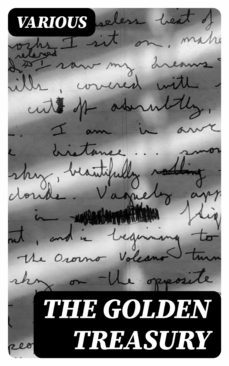 VARIOUS
seless beat of
I sit on, make
relieved
I saw my dreams
ills, covered with
cut off abruptly,
I am in awe
distance ... smo
sky, beautifully
clouds. Vaguely app
in
nt, and is beginning to
the Osorno Volcano turn
sky on the opposite
THE GOLDEN
TREASURY
peo